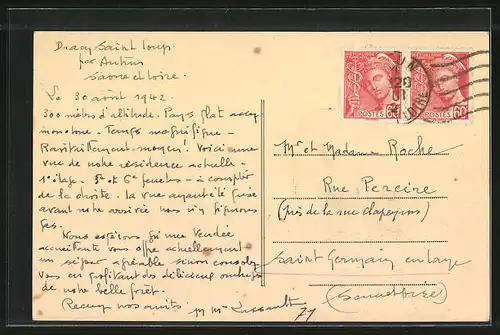 Dracy Saint Loup
par Autun
Saone et Loire.
Le 30 août 1942.
300 mètres d'altitude. Pays plat assez
monotone. Temps magnifique -
Ravitaillement moyen! Voici une
vue de notre résidence actuelle -
1er étage. 5e et 6e fenêtres - à compter
de la droite. La vue ayant été prise
avant notre arrivée nous n'y figurons
pas.
Nous espérons que une Vendée
accueillante vous offre actuellement
un séjour agréable sinon consolez
vous en profitant des délicieux ombrages
de notre belle forêt.
Recevez nos amitiés.
71
POSTES 60
POSTES 60
Mr et Madame Roche
Rue Pereire
(près de la rue Lapeyrère)
Saint Germain en Laye